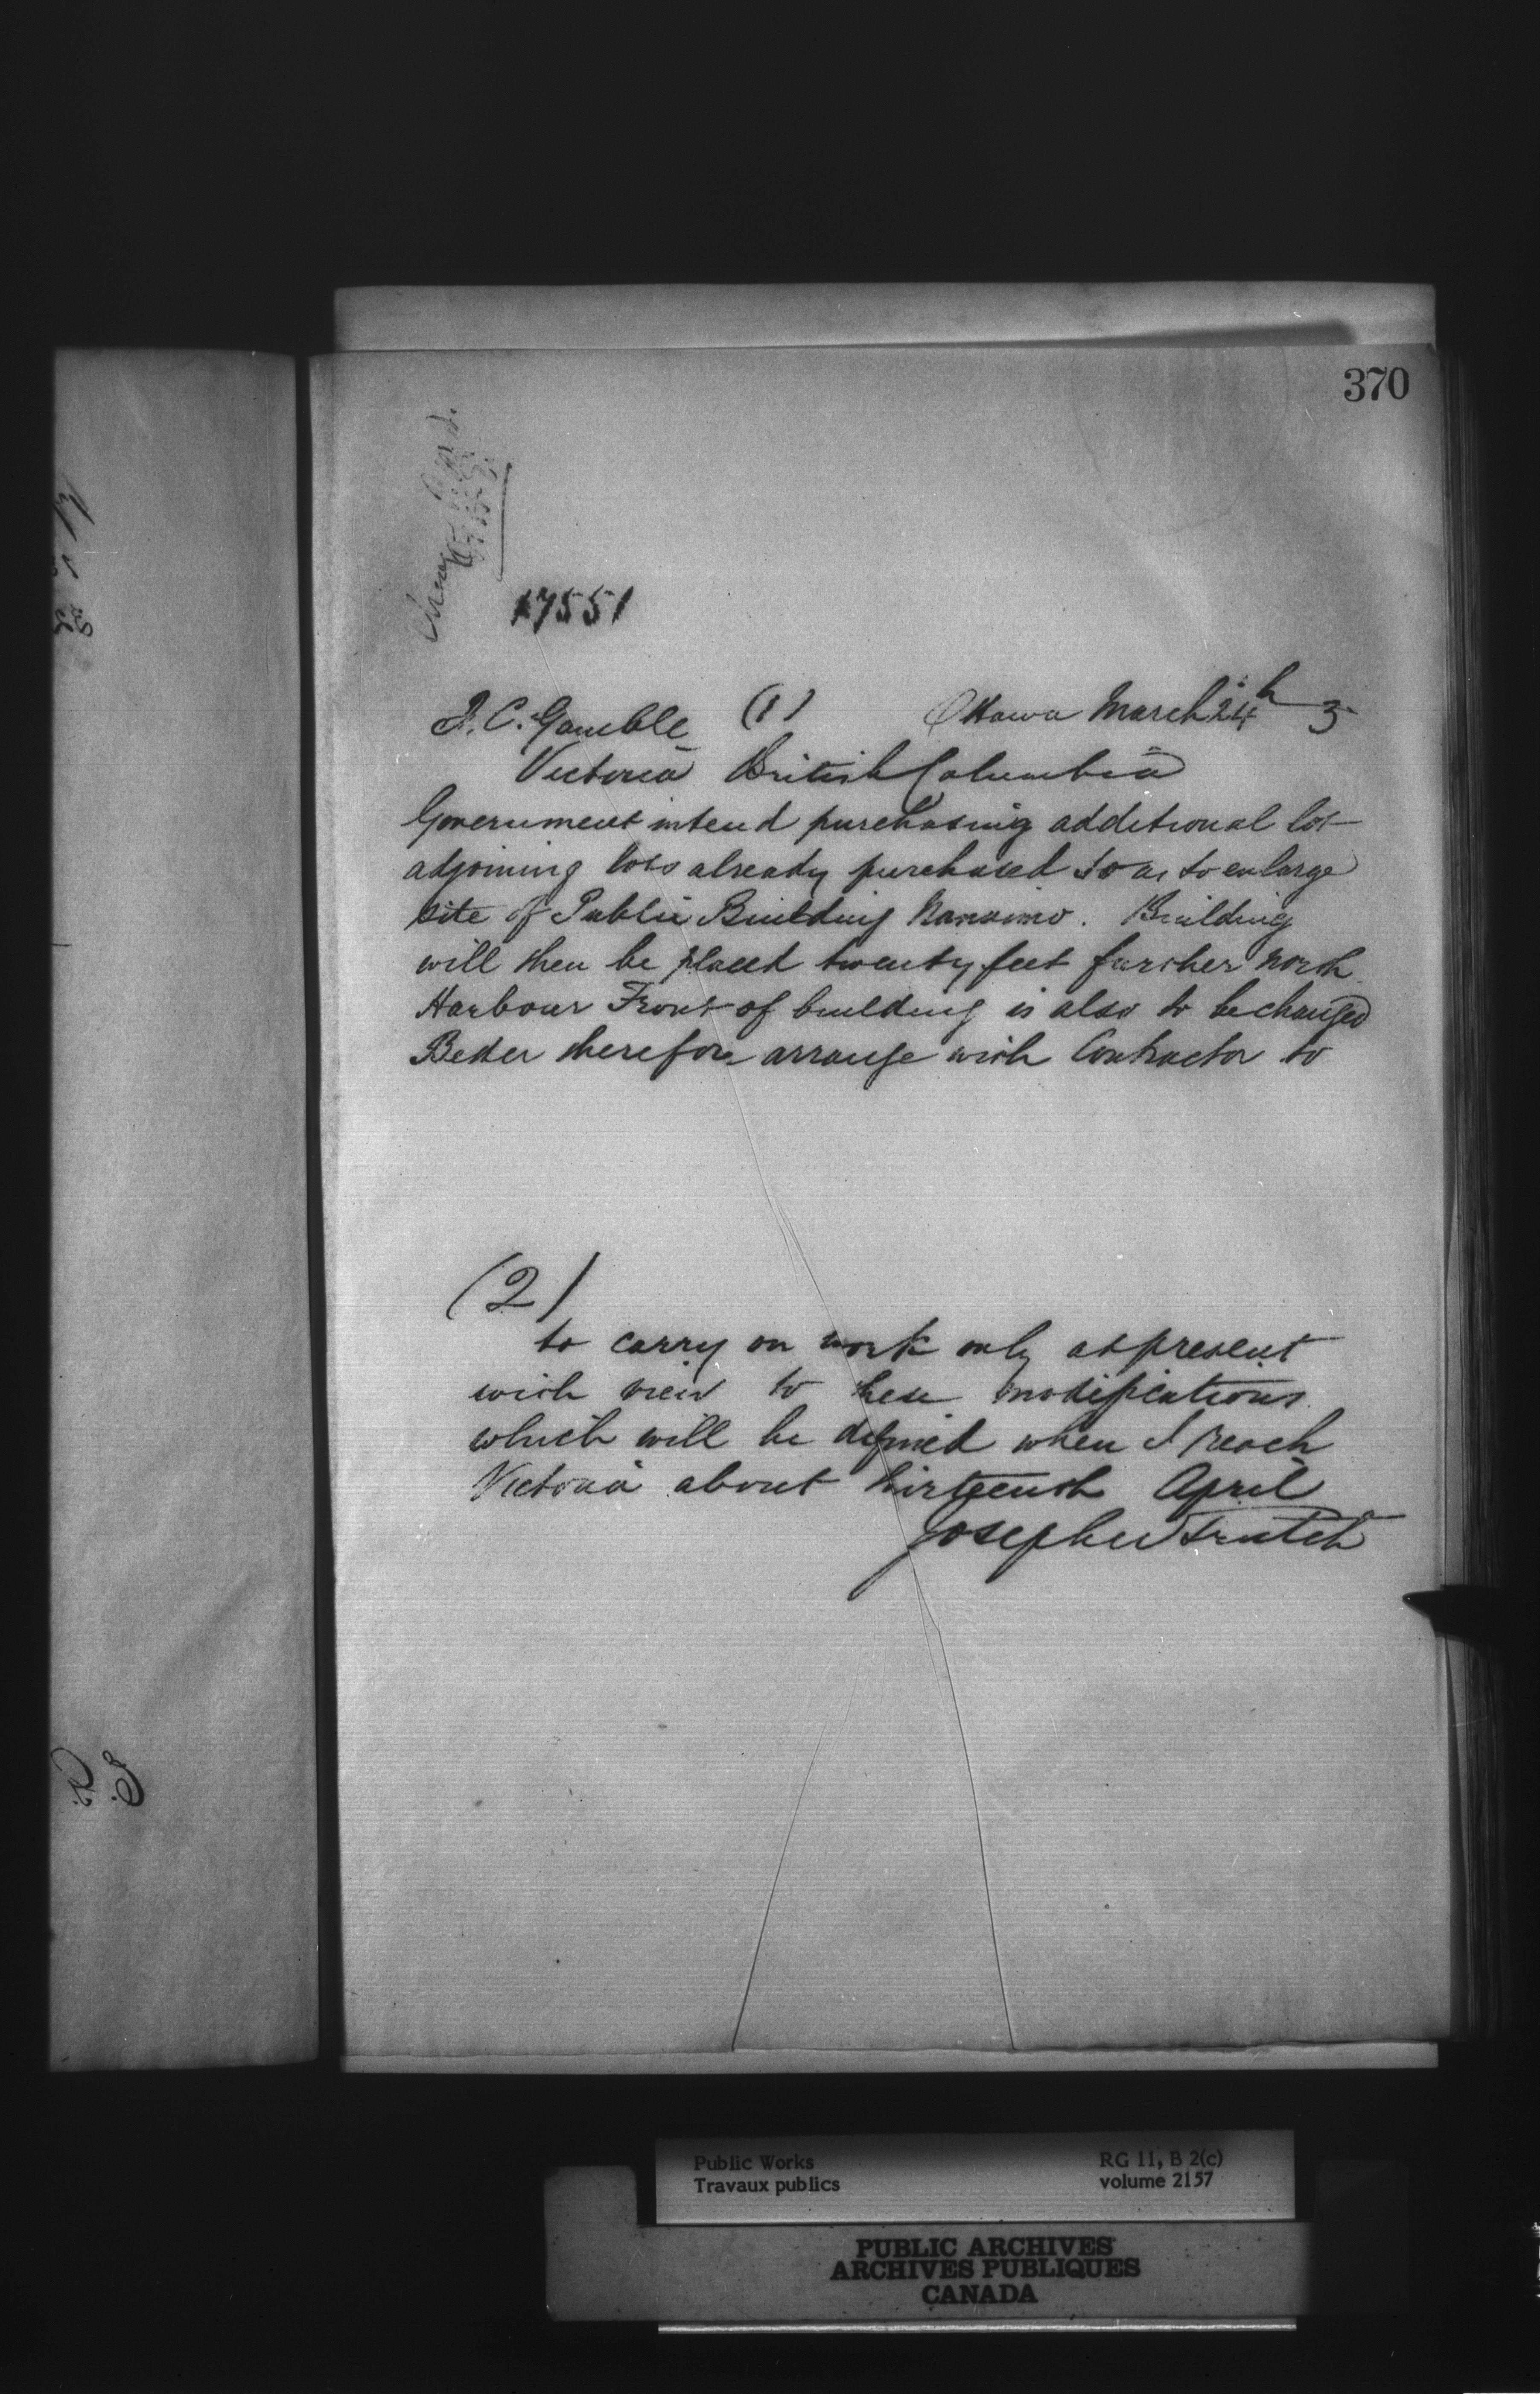 370
17551
F. C. Gamble (1) Ottawa March 24th 3
Victoria British Columbia
Government intend purchasing additional lot
adjoining lots already purchased so as to enlarge
site of Public Building Nanaimo. Building
will then be placed twenty feet further north
Harbour Front of building is also to be changed
Better therefore arrange with Contractor to
(2)
to carry on work only at present
with view to these modifications
which will be defined when I reach
Victoria about thirteenth April
Joseph W Trutch
Public Works RG 11, B 2(c)
Travaux publics volume 2157
PUBLIC ARCHIVES
ARCHIVES PUBLIQUES
CANADA